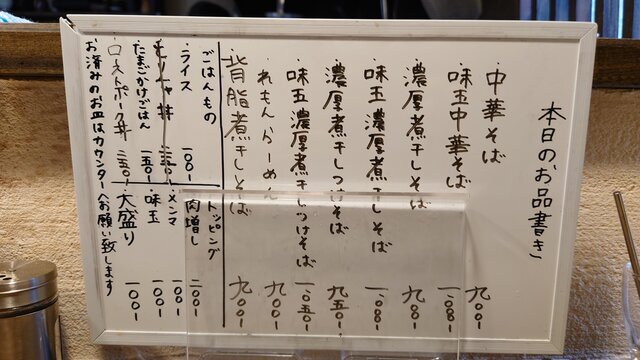 本日のお品書き
中華そば 九〇〇-
味玉中華そば 一、〇〇〇-
濃厚煮干しそば 九〇〇-
味玉濃厚煮干しそば 一、〇〇〇-
濃厚煮干しつけそば 九五〇-
味玉濃厚煮干しつけそば 一〇五〇-
れもんらーめん 九〇〇-
背脂煮干しそば 九〇〇-
ごはんもの
・ライス 一〇〇-
丼 二五〇-
・たまごかけごはん 一五〇-
・ローストポーク丼 三五〇-
トッピング
・肉増し 二〇〇-
・メンマ 一〇〇-
・味玉 一〇〇-
・大盛り 一〇〇-
お済みのお皿はカウンターへお願い致します